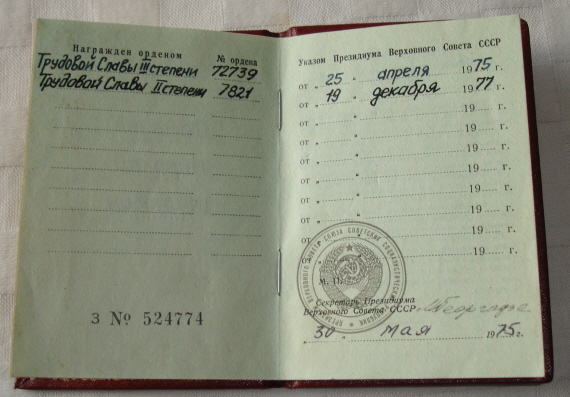 Награжден орденом № ордена
Трудовой Славы III степени 72739
Трудовой Славы II степени 7821
З № 524774
Указом Президиума Верховного Совета СССР
от „ 25 „ апреля 1975 г.
от „ 19 „ декабря 1977 г.
от „ „ 19 г.
от „ „ 19 г.
от „ „ 19 г.
от „ „ 19 г.
от „ „ 19 г.
от „ „ 19 г.
от „ 19 г.
М. П.
Секретарь Президиума
Верховного Совета СССР
30 мая 1975 г.